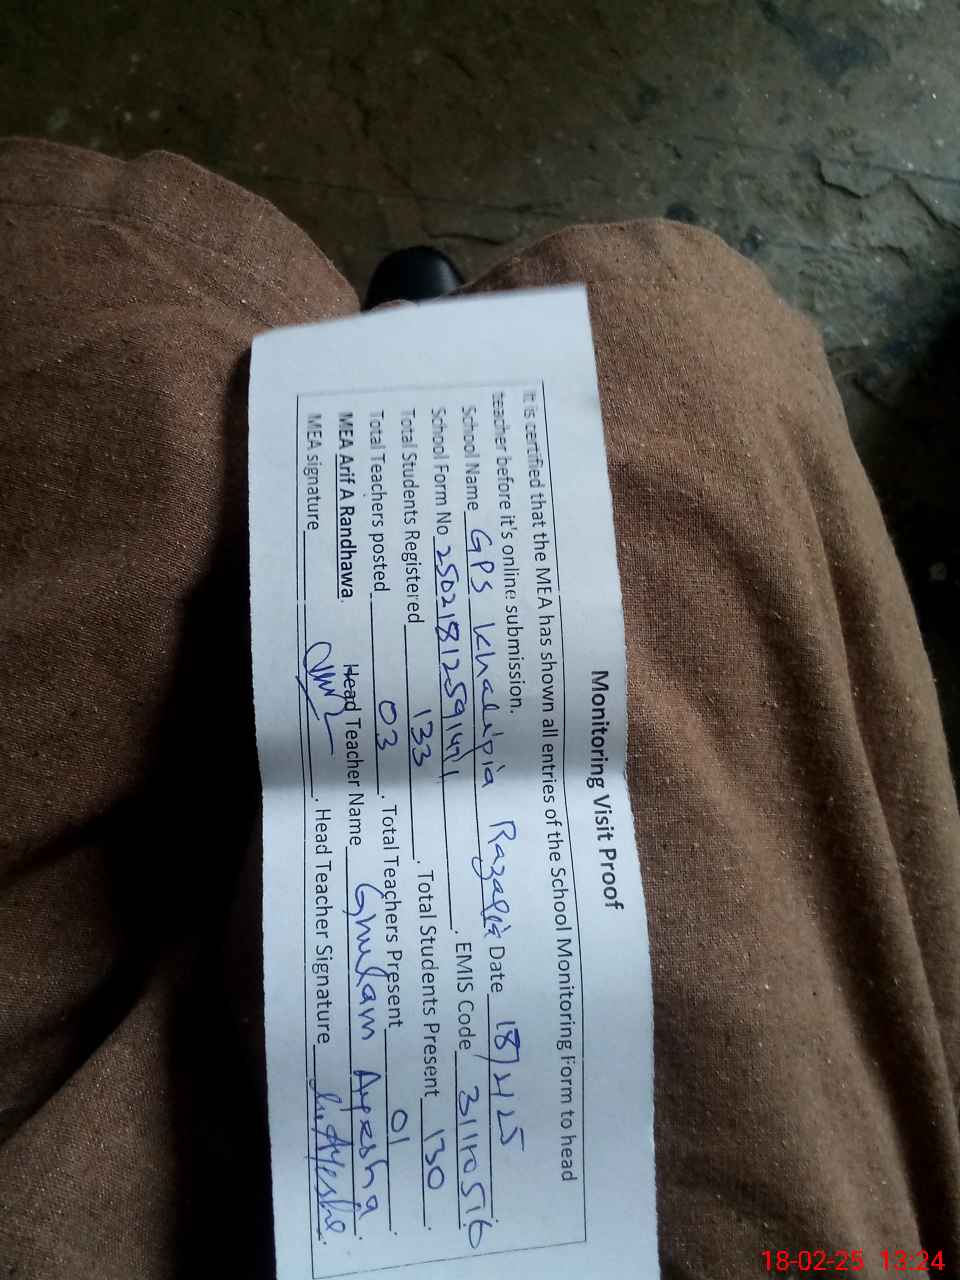 Monitoring Visit Proof
It is certified that the MEA has shown all entries of the School Monitoring Form to head
teacher before it's online submission.
School Name GPS Khalipia Razapia Date 18/2/25
School Form No 2502181259147. EMIS Code 31110516
Total Students Registered 133. Total Students Present 130.
Total Teachers posted 03. Total Teachers Present 01.
MEA Arif A Randhawa. Head Teacher Name Ghulam Ayesha.
MEA signature. Head Teacher Signature Ayesha.
18-02-25 13:24